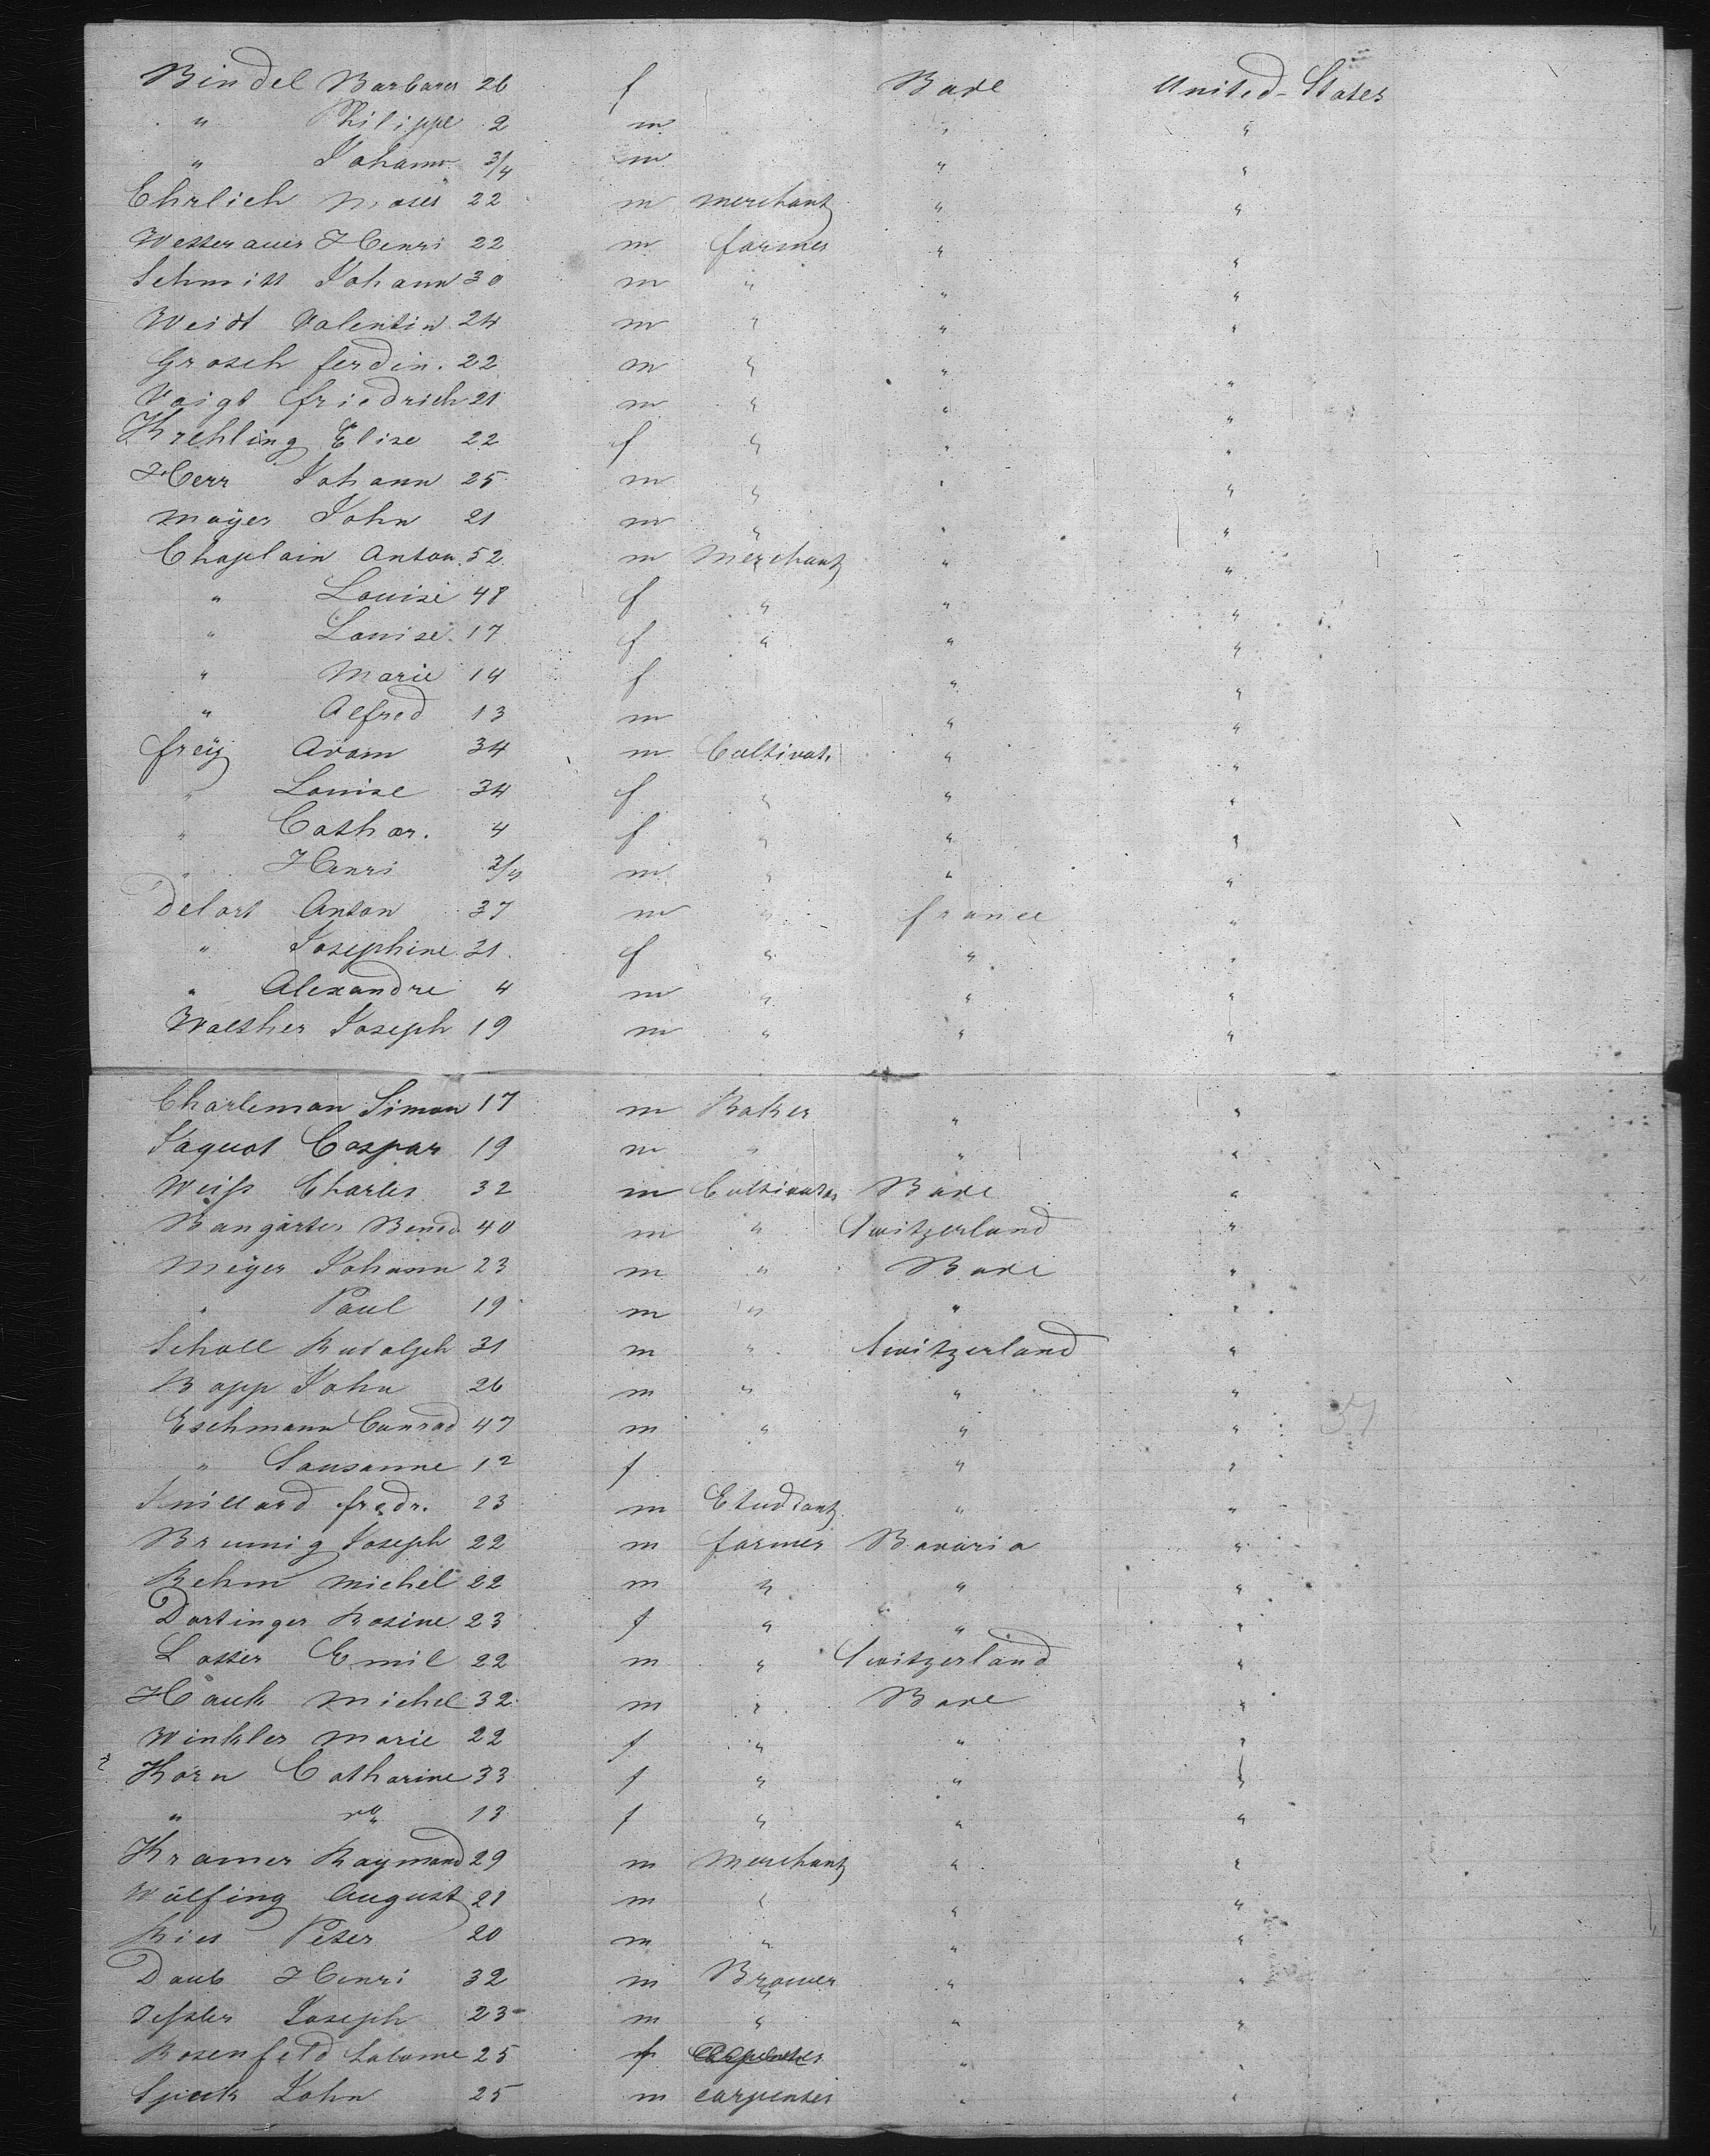 Bindel Barbara 26 f Bade United-States
" Philippe 2 m " "
" Johann 3/4 m " "
Ehrlich Moses 22 m merchant " "
Westerauer Henri 22 m farmer " "
Schmitt Johann 30 m " " "
Weidt Valentin 24 m " " "
Grosch ferdin. 22 m " " "
Voigt friedrich 21 m " " "
Krehling Elise 22 f " " "
Herr Johann 25 m " " "
Mayer John 21 m " " "
Chaplain Anton. 52 m Merchant " "
" Louise 48 f " " "
" Louise 17 f " " "
" Marie 14 f " "
" Alfred 13 m " "
freÿ Adam 34 m Cultivat. " "
" Louise 34 f " " "
" Cathar. 4 f " " "
" Henri 3/4 m " " "
Delort Anton 37 m " france "
" Josephine 31 f " " "
" Alexandre 4 m " " "
Walther Joseph 19 m " " "
Charleman Simon 17 m Baker " "
Jaquot Caspar 19 m " " "
Weiss Charles 32 m Cultivator Bade "
Bangärter Bened. 40 m " Switzerland "
Meÿer Johann 23 m " Bade "
" Paul 19 m " " "
Scholl Rudolph 31 m " Switzerland "
Bopp John 26 m " " "
Eschmann Conrad 47 m " " " 37
" Sausanne 12 f " "
fredr. 23 m Etudiant " "
Brumig Joseph 22 m farmer Bavaria "
Rehm Michel 22 m " " "
Dortinger Rosine 23 f " " "
Losser Emil 22 m " Switzerland "
Hauk Michel 32 m " Bade "
Winkler Marie 22 f " " "
Korn Catharine 33 f " " "
" do 13 f " " "
Kramer Raymond 29 m Merchant " "
Wülfing August 21 m " " "
Ries Peter 20 m " " "
Daub Henri 32 m Brower " "
Joseph 23 m " " "
Rosenfeld Salome 25 f " "
John 25 m carpenter " "